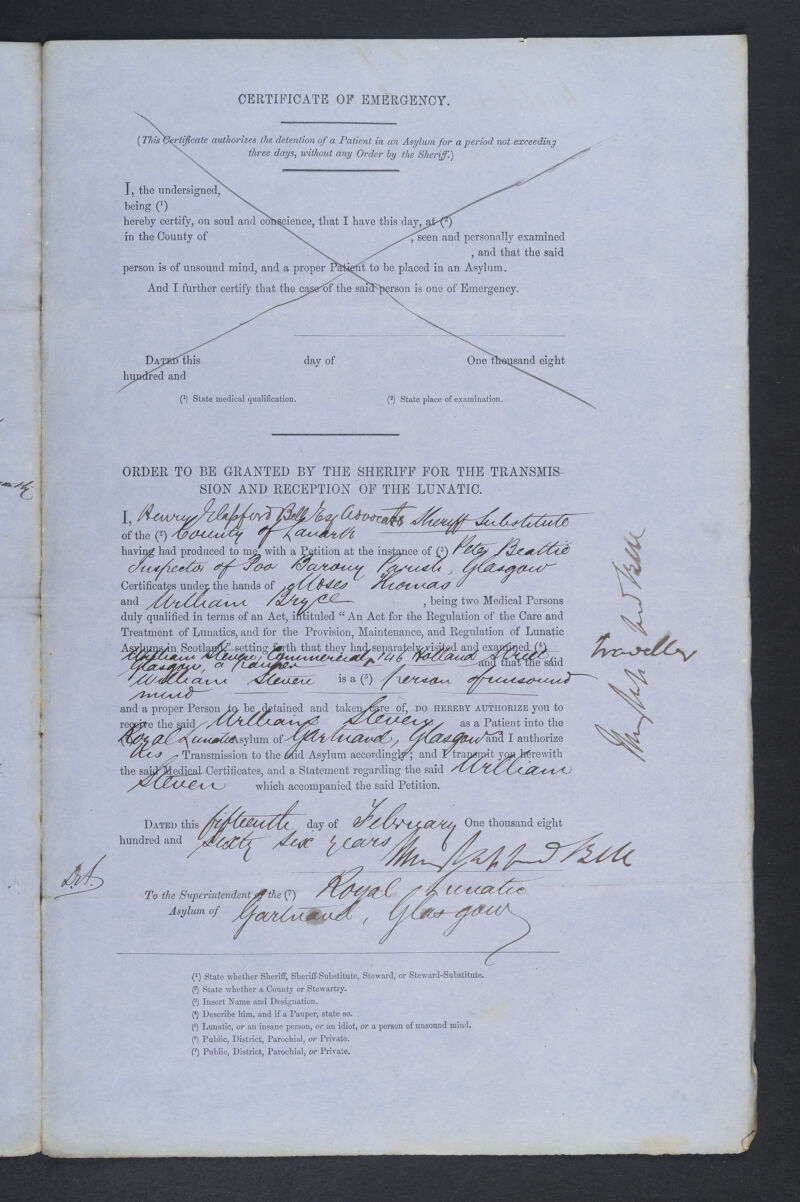 CERTIFICATE OF EMERGENCY.
(This Certificate authorizes the detention of a Patient in an Asylum for a period not exceeding
three days, without any Order by the Sheriff.)
I, the undersigned,
being (1)
hereby certify, on soul and conscience, that I have this day, at (2)
in the County of , seen and personally examined
, and that the said
person is of unsound mind, and a proper Patient to be placed in an Asylum.
And I further certify that the case of the said person is one of Emergency.
DATED this day of One thousand eight
hundred and
(1) State medical qualification. (2) State place of examination.
ORDER TO BE GRANTED BY THE SHERIFF FOR THE TRANSMIS-
SION AND RECEPTION OF THE LUNATIC.
I, Henry Glassford Bell Esq Advocate Sheriff Substitute
of the (2) County of Lanark
having had produced to me, with a Petition at the instance of (3) Peter Beattie
Inspector of Poor Barony Parish, Glasgow
Certificates under the hands of Moses Thomas
and William Bryce , being two Medical Persons
duly qualified in terms of an Act, intituled "An Act for the Regulation of the Care and
Treatment of Lunatics, and for the Provision, Maintenance, and Regulation of Lunatic
Asylums in Scotland," setting forth that they had separately visited and examined (4)
William Steven Commercial 146 Holland Street traveller
Glasgow, a Pauper and that the said
William Steven is a (5) person of unsound
mind
and a proper Person to be detained and taken care of, DO HEREBY AUTHORIZE you to
receive the said William Steven as a Patient into the
Royal Lunatic Asylum of Gartnavel, Glasgow and I authorize
his Transmission to the said Asylum accordingly; and I transmit you herewith
the said Medical Certificates, and a Statement regarding the said William
Steven which accompanied the said Petition.
DATED this fifteenth day of February One thousand eight
hundred and sixty six years
Henry Glassford Bell
To the Superintendent of the (7) Royal Lunatic
Asylum of Gartnavel, Glasgow
(1) State whether Sheriff, Sheriff-Substitute, Steward, or Steward-Substitute.
(2) State whether a County or Stewartry.
(3) Insert Name and Designation.
(4) Describe him, and if a Pauper, state so.
(5) Lunatic, or an insane person, or an idiot, or a person of unsound mind.
(6) Public, District, Parochial, or Private.
(7) Public, District, Parochial, or Private.
Henry Glassford Bell